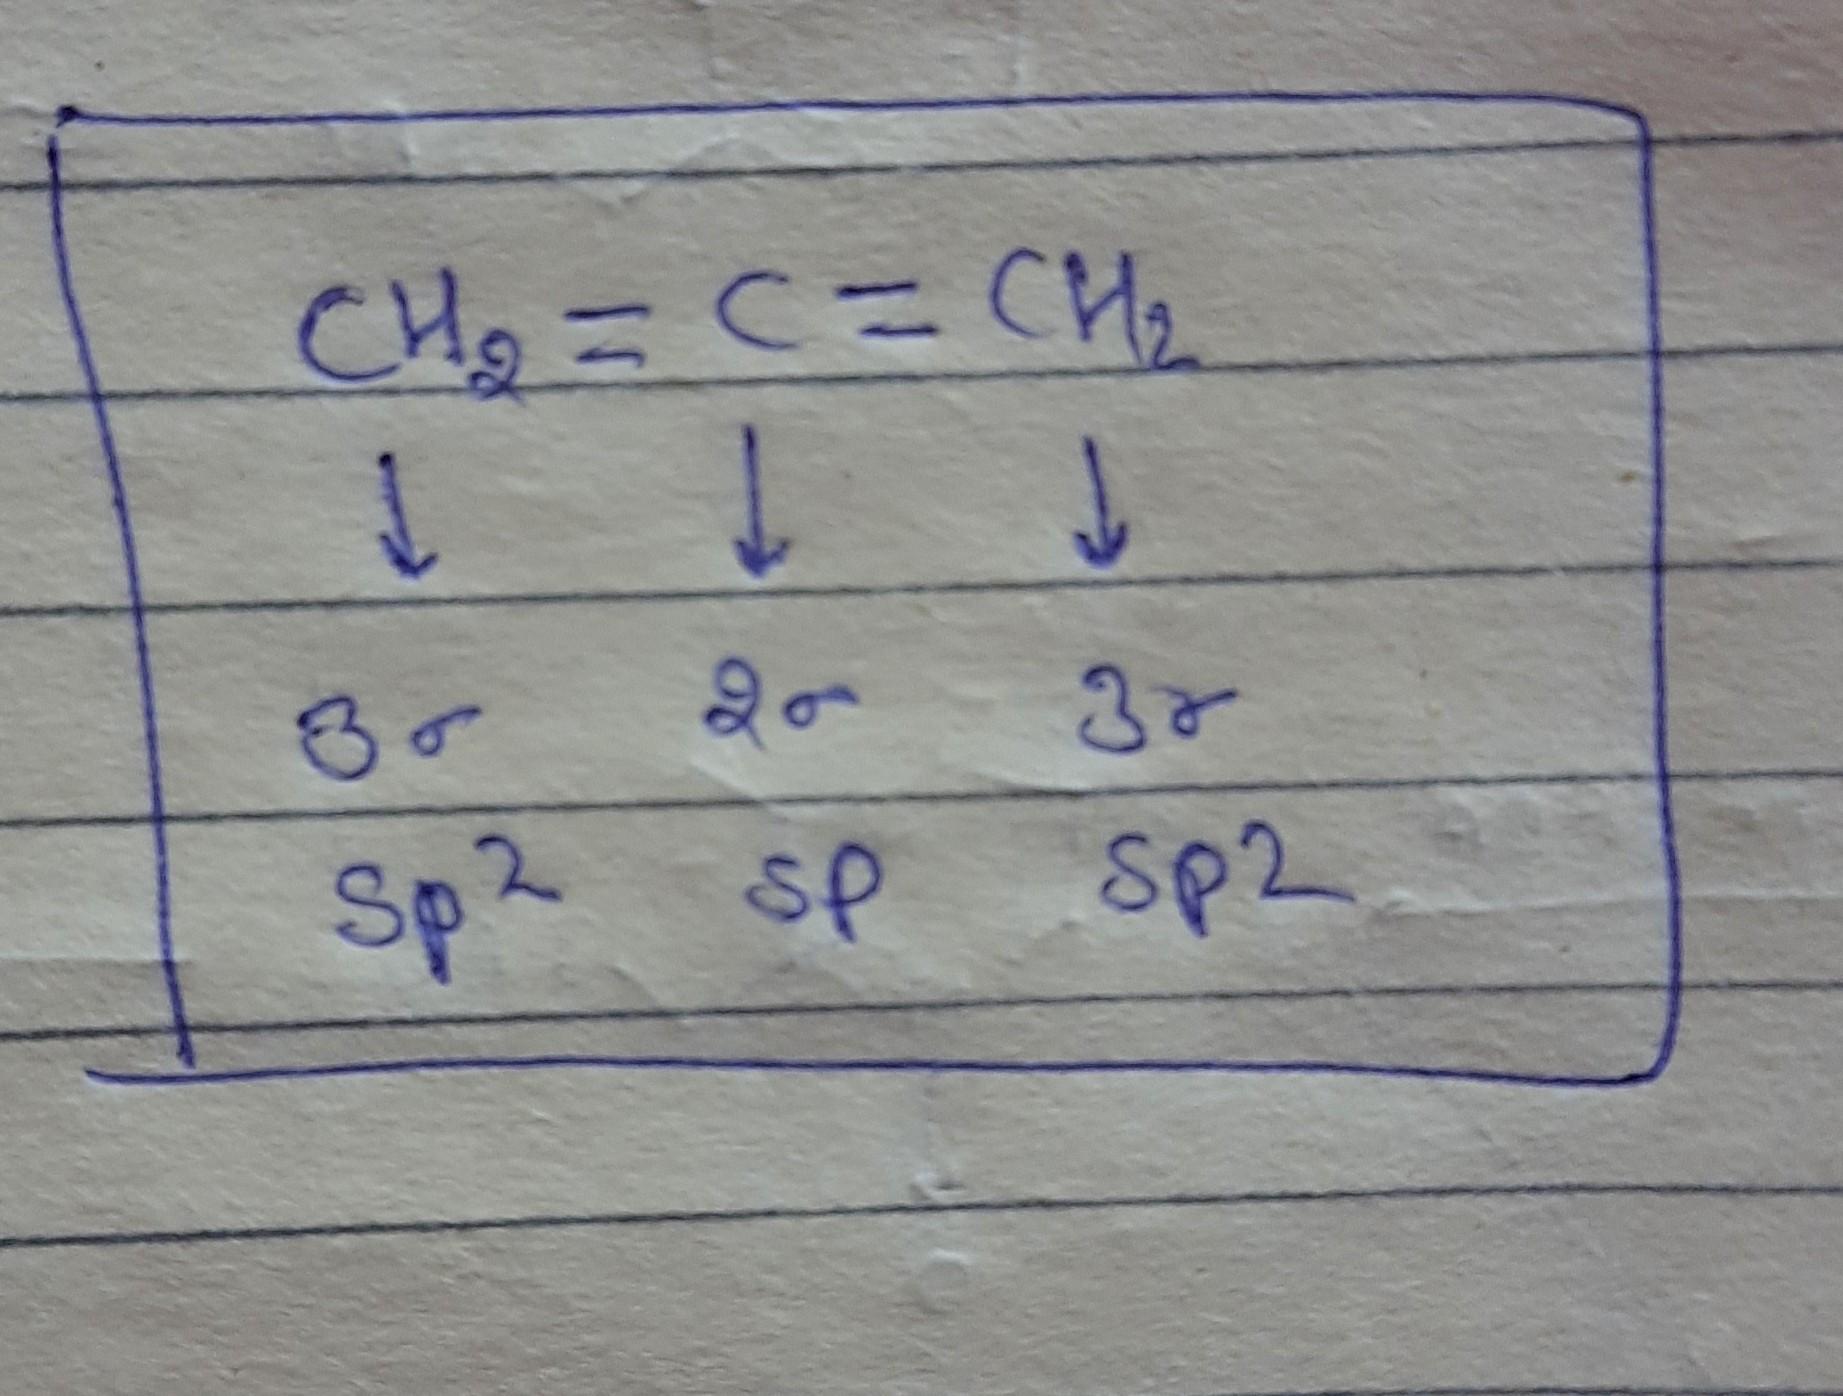 CH₂ = C = CH₂
↓ ↓ ↓
3σ 2σ 3σ
Sp² sp Sp2